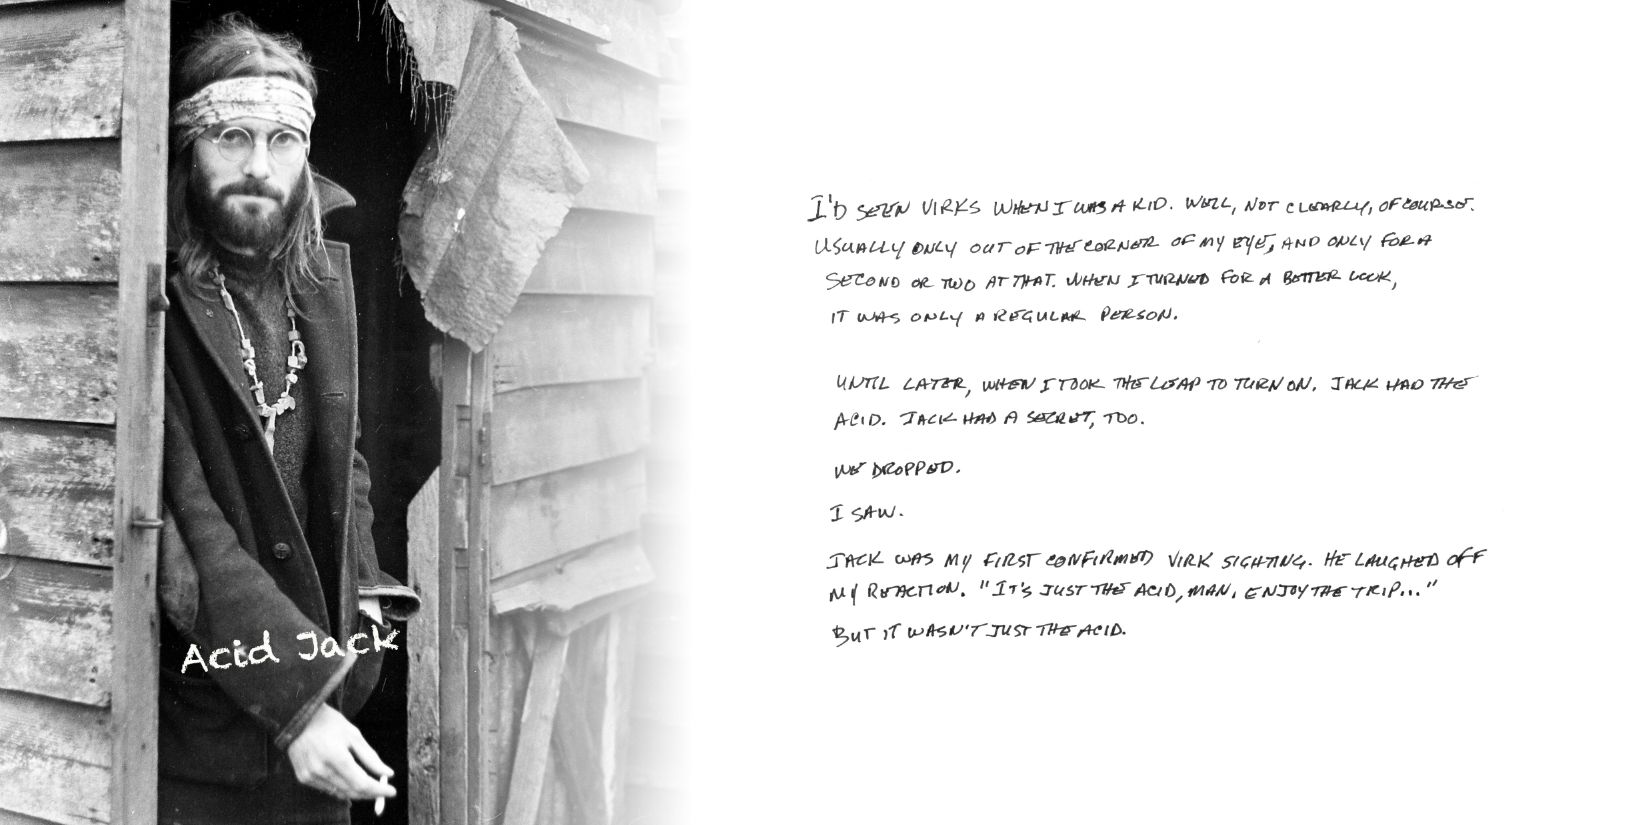 Acid Jack
I'D SEEN VIRKS WHEN I WAS A KID. WELL, NOT CLEARLY, OF COURSE.
USUALLY ONLY OUT OF THE CORNER OF MY EYE, AND ONLY FOR A
SECOND OR TWO AT THAT. WHEN I TURNED FOR A BETTER LOOK,
IT WAS ONLY A REGULAR PERSON.
UNTIL LATER, WHEN I TOOK THE LEAP TO TURN ON. JACK HAD THE
ACID. JACK HAD A SECRET, TOO.
WE DROPPED.
I SAW.
JACK WAS MY FIRST CONFIRMED VIRK SIGHTING. HE LAUGHED OFF
MY REACTION. "IT'S JUST THE ACID, MAN. ENJOY THE TRIP..."
BUT IT WASN'T JUST THE ACID.